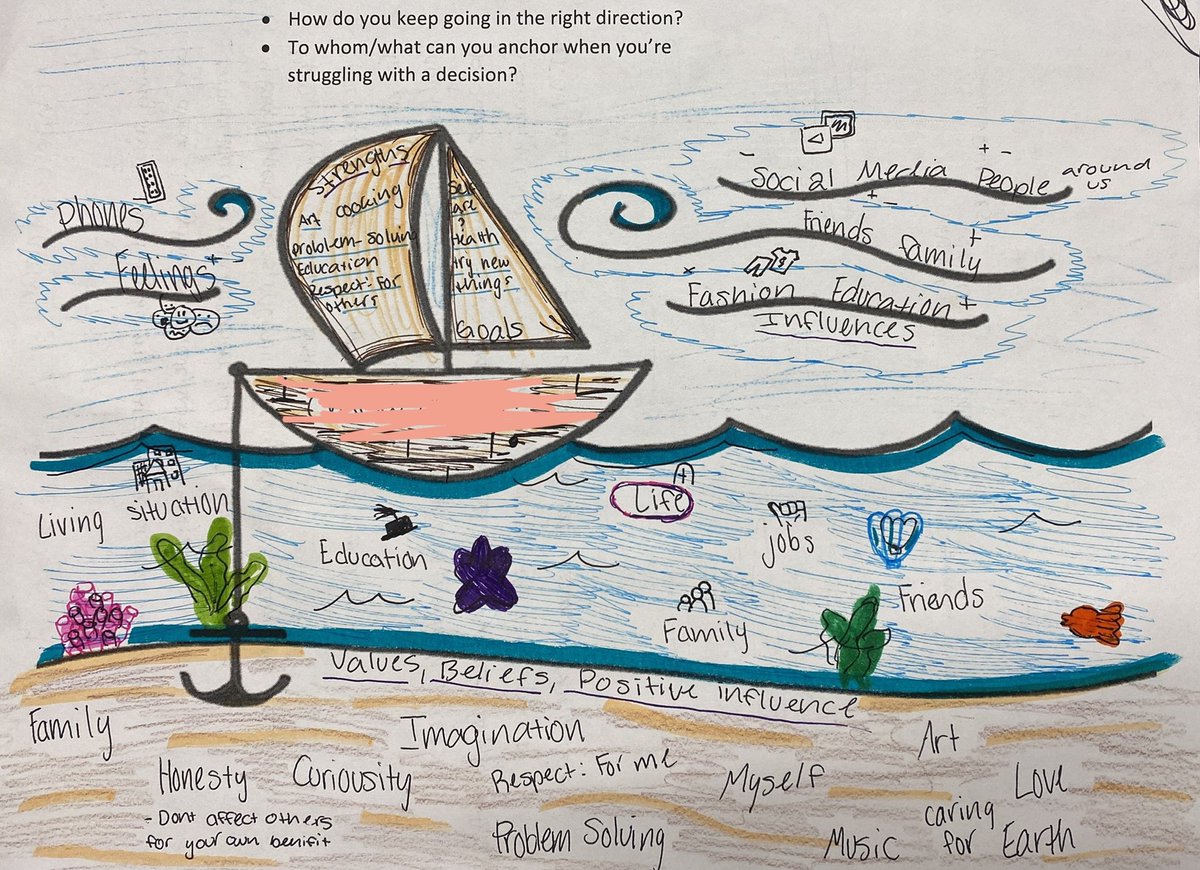 • How do you keep going in the right direction?
• To whom/what can you anchor when you're
struggling with a decision?
Strengths
Art cooking
prololem-solving
Education
Respect: For
others
Self
care
?
Health
try new
things
Goals
Phones
Feelings +
- Social Media + - People around
us
+ - Friends family +
x Fashion Education +
Influences
Living situation
Education
Life
jobs
Family
Friends
Values, Beliefs, Positive influence
Family
Imagination
Art
Honesty
Curiousity
Respect: For me
Myself
Love
- Dont affect others
for your own benifit
Problem Solving
Music
caring
for Earth